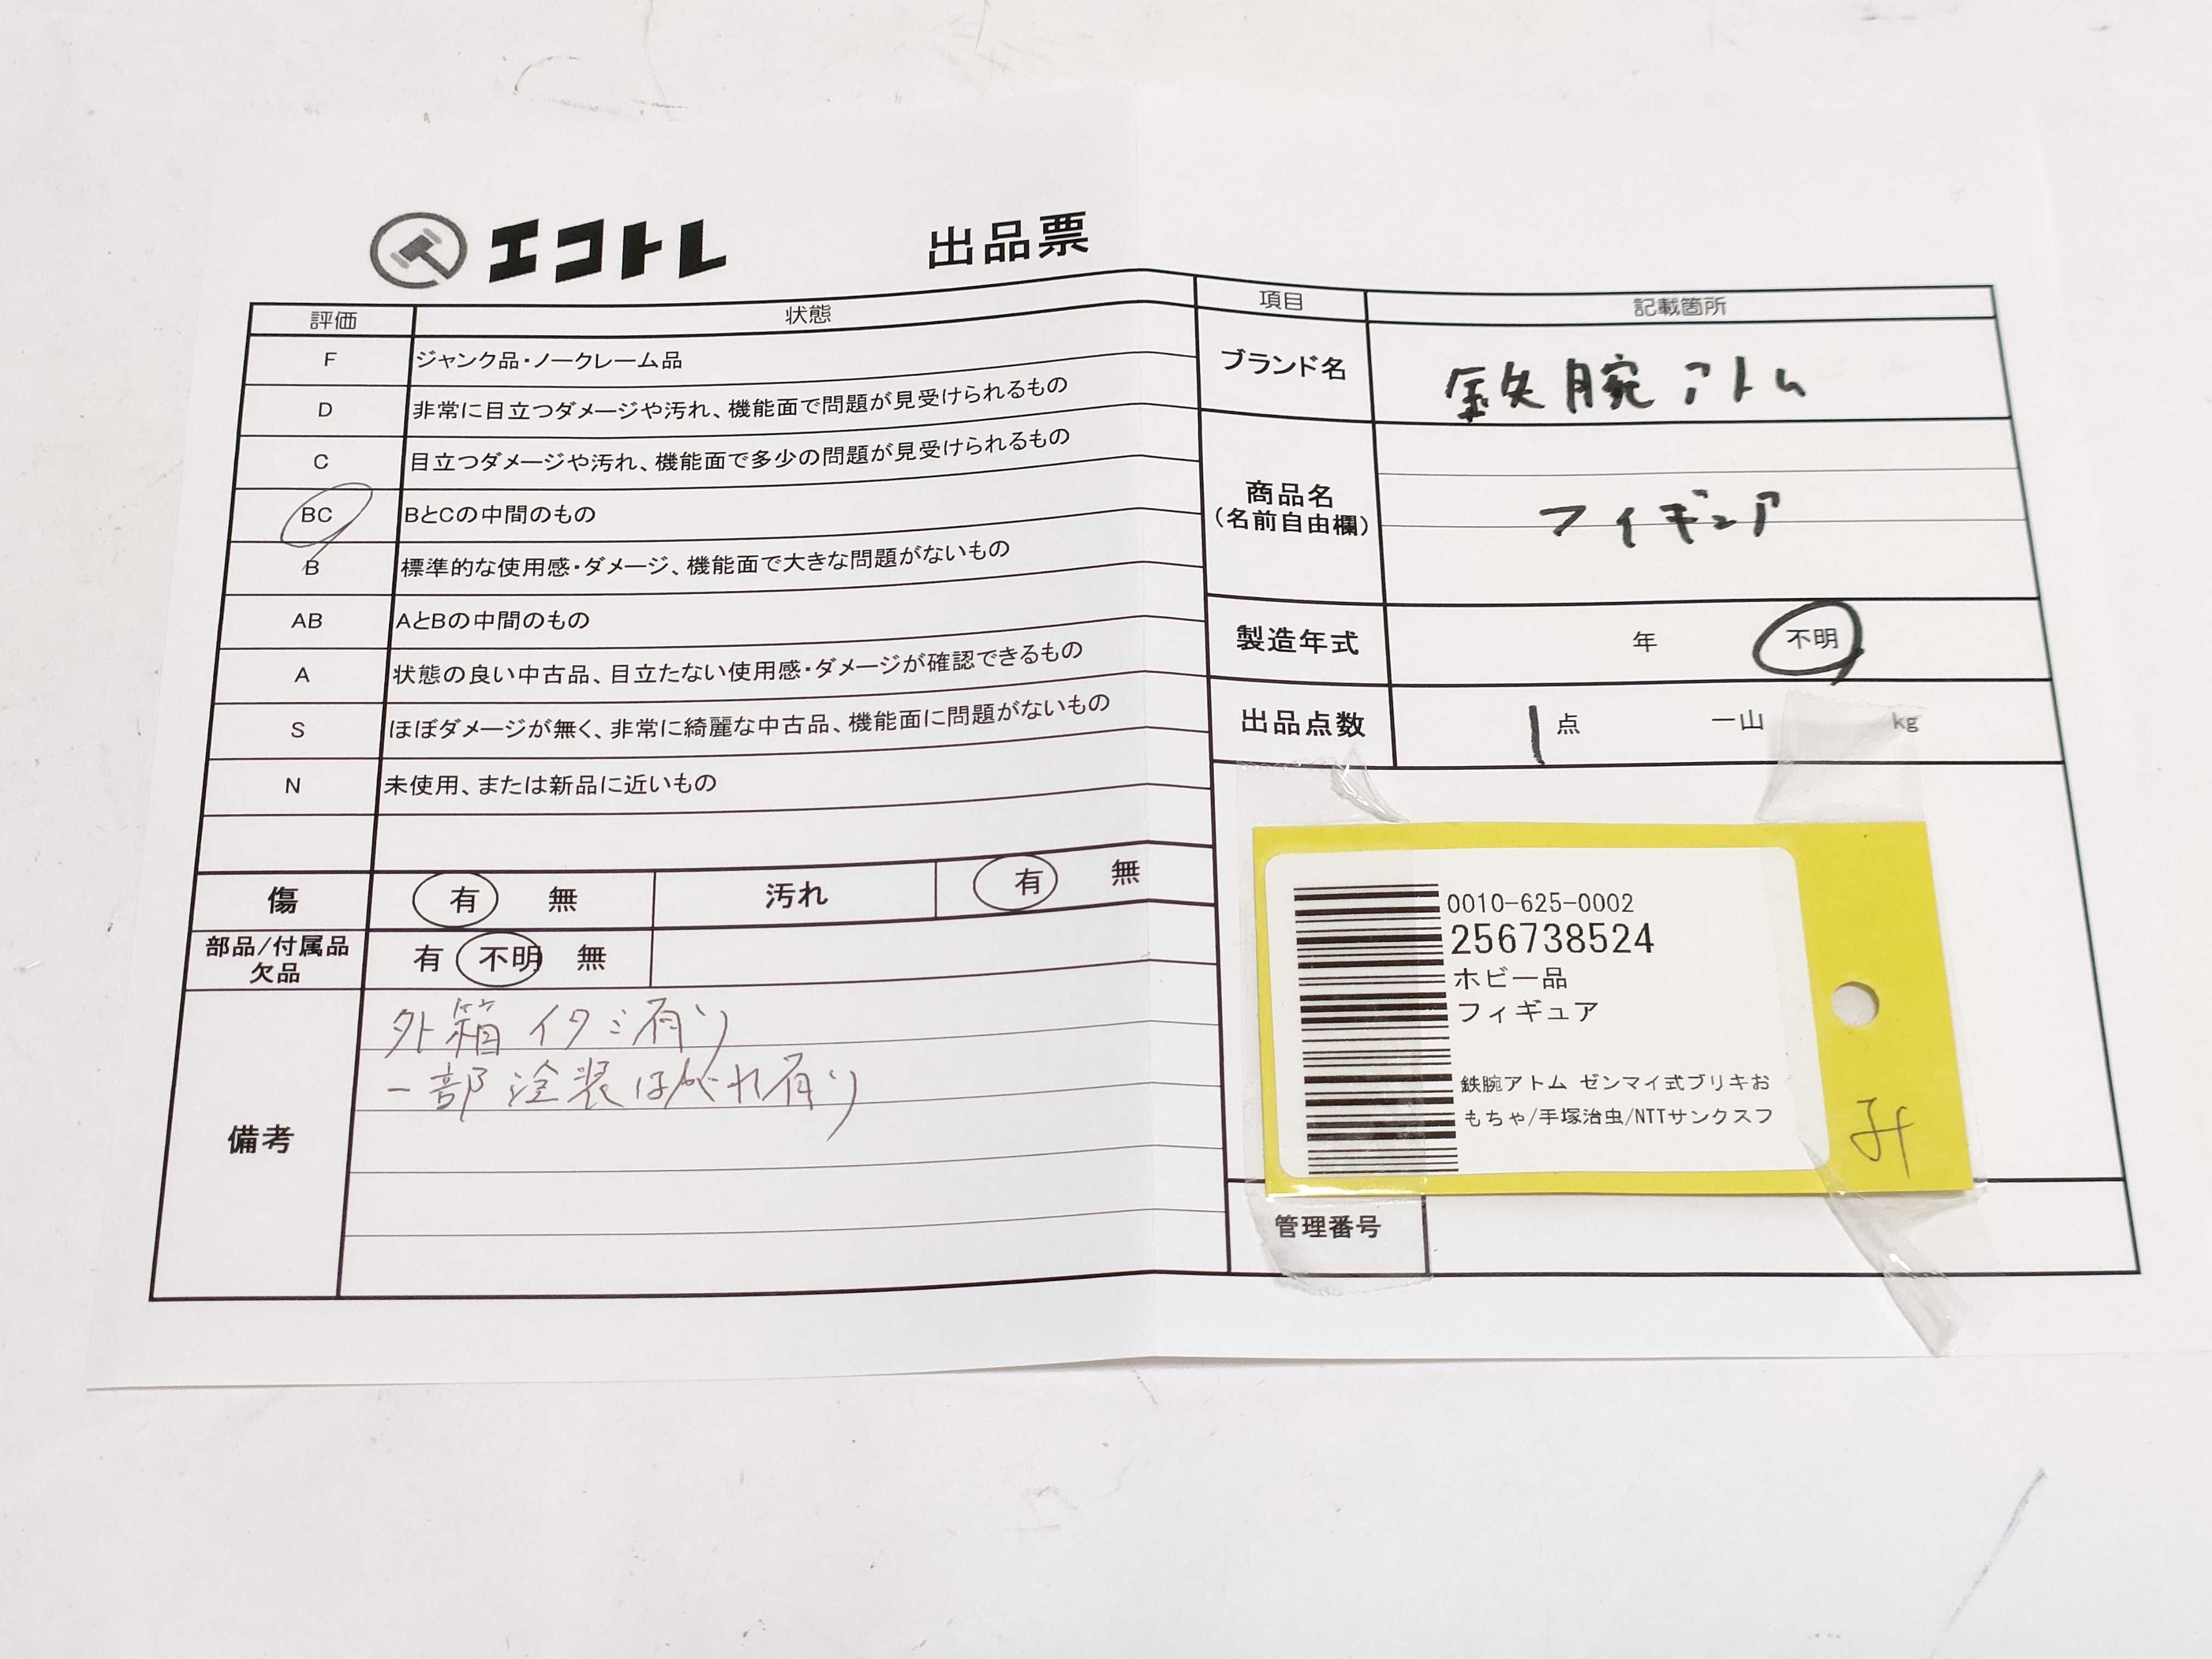 エコトレ 出品票
評価 状態
F ジャンク品・ノークレーム品
D 非常に目立つダメージや汚れ、機能面で問題が見受けられるもの
C 目立つダメージや汚れ、機能面で多少の問題が見受けられるもの
BC BとCの中間のもの
B 標準的な使用感・ダメージ、機能面で大きな問題がないもの
AB AとBの中間のもの
A 状態の良い中古品、目立たない使用感・ダメージが確認できるもの
S ほぼダメージが無く、非常に綺麗な中古品、機能面に問題がないもの
N 未使用、または新品に近いもの
傷 有 無 汚れ 有 無
部品/付属品
欠品 有 不明 無
備考
外箱イタミ有り
一部塗装はがれ有り
項目 記載箇所
ブランド名 鉄腕アトム
商品名
(名前自由欄) フィギュア
製造年式 年 不明
出品点数 1 点 一山 kg
0010-625-0002
256738524
ホビー品
フィギュア
鉄腕アトム ゼンマイ式ブリキお
もちゃ/手塚治虫/NTTサンクスフ
管理番号